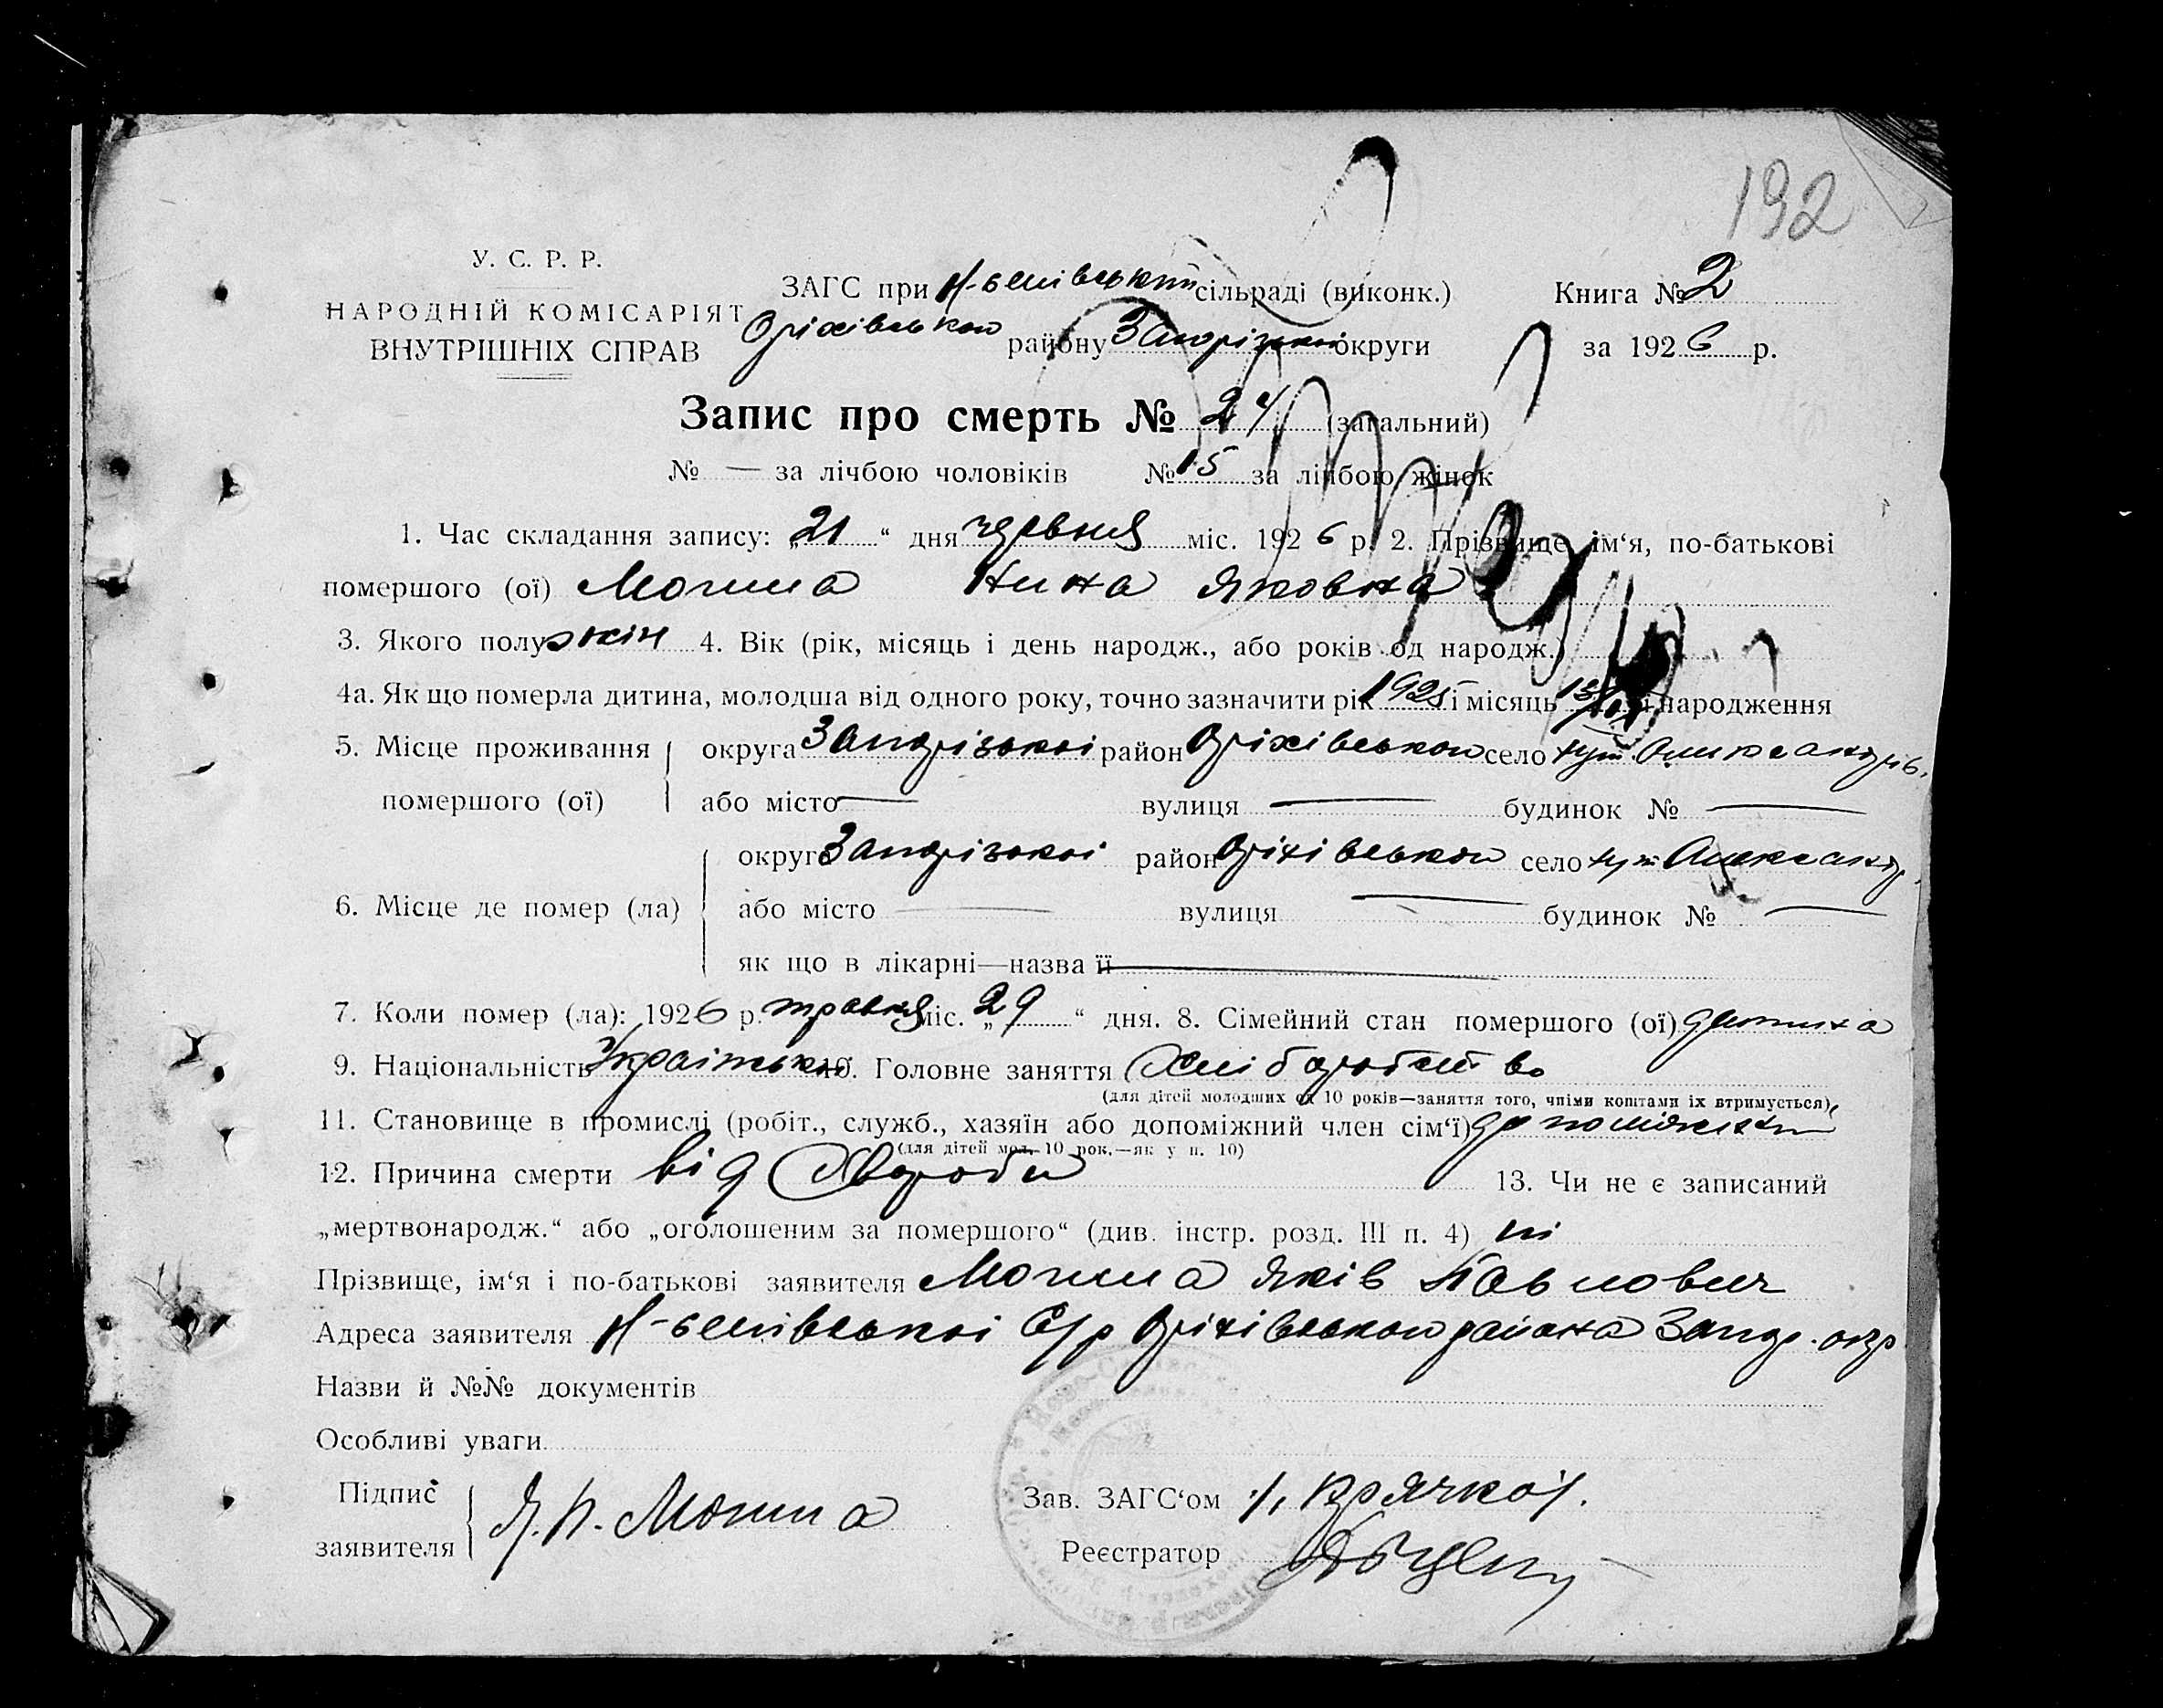 192
У. С. Р. Р.
НАРОДНІЙ КОМІСАРІЯТ
ВНУТРІШНІХ СПРАВ
ЗАГС при сільраді (виконк.)
Оріхівського району Запорізької округи
Книга № 2
за 1926 р.
Запис про смерть № 24 (загальний)
№ — за лічбою чоловіків № 15 за лічбою жінок
1. Час складання запису: „21“ дня червня міс. 1926 р. 2. Прізвище, ім‘я, по-батькові
помершого (ої) Могила Нина Яковна
3. Якого полу жін 4. Вік (рік, місяць і день народж., або років од народж.)
4а. Як що померла дитина, молодша від одного року, точно зазначити рік 1925 і місяць народження
5. Місце проживання помершого (ої) округа Запорізької район Оріхівського село хут. Олександрів.
або місто — вулиця — будинок № —
6. Місце де помер (ла) округа Запорізької район Оріхівського село хут Олександр.
або місто — вулиця — будинок № —
як що в лікарні—назва її —
7. Коли помер (ла): 1926 р. травня міс. „29“ дня. 8. Сімейний стан помершого (ої) дитина
9. Національність Українська 10. Головне заняття Хліборобство
(для дітей молодших од 10 років—заняття того, чиїми коштами їх втримується)
11. Становище в промислі (робіт., служб., хазяїн або допоміжний член сім‘ї)
(для дітей мол. 10 рок.—як у п. 10)
12. Причина смерти від Хвороби 13. Чи не є записаний
„мертвонародж.“ або „оголошеним за помершого“ (див. інстр. розд. III п. 4) ні
Прізвище, ім‘я і по-батькові заявителя Могила Яків Павлович
Адреса заявителя С/р Оріхівського района Запор. окр
Назви й №№ документів
Особливі уваги
Підпис заявителя Я. П. Могила
Зав. ЗАГС‘ом
Реєстратор